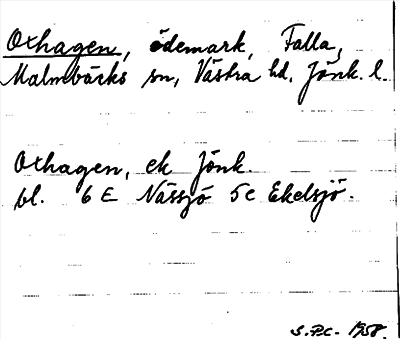 Oxhagen, ödemark, Falla,
Malmbäcks sn, Västra hd, Jönk. l.
Oxhagen, ek Jönk.
bl. 6 E Nässjö 5c Ekelsjö.
S.P.C. 1958.